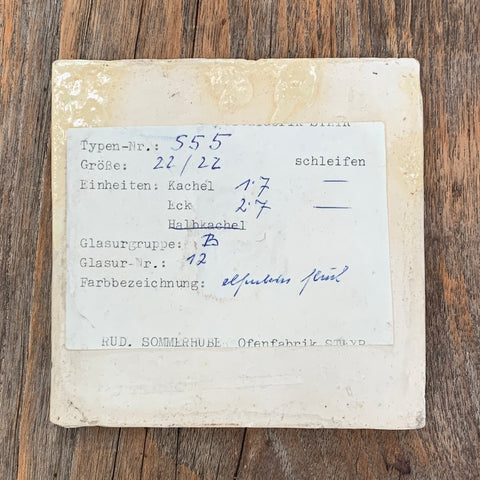 Typen-Nr.: S55
Größe: 22/22 schleifen
Einheiten: Kachel 1.7 —
Eck 2.7 —
Halbkachel
Glasurgruppe: B
Glasur-Nr.: 12
Farbbezeichnung: elfenbein
RUD. SOMMERHUBE Ofenfabrik STEYR